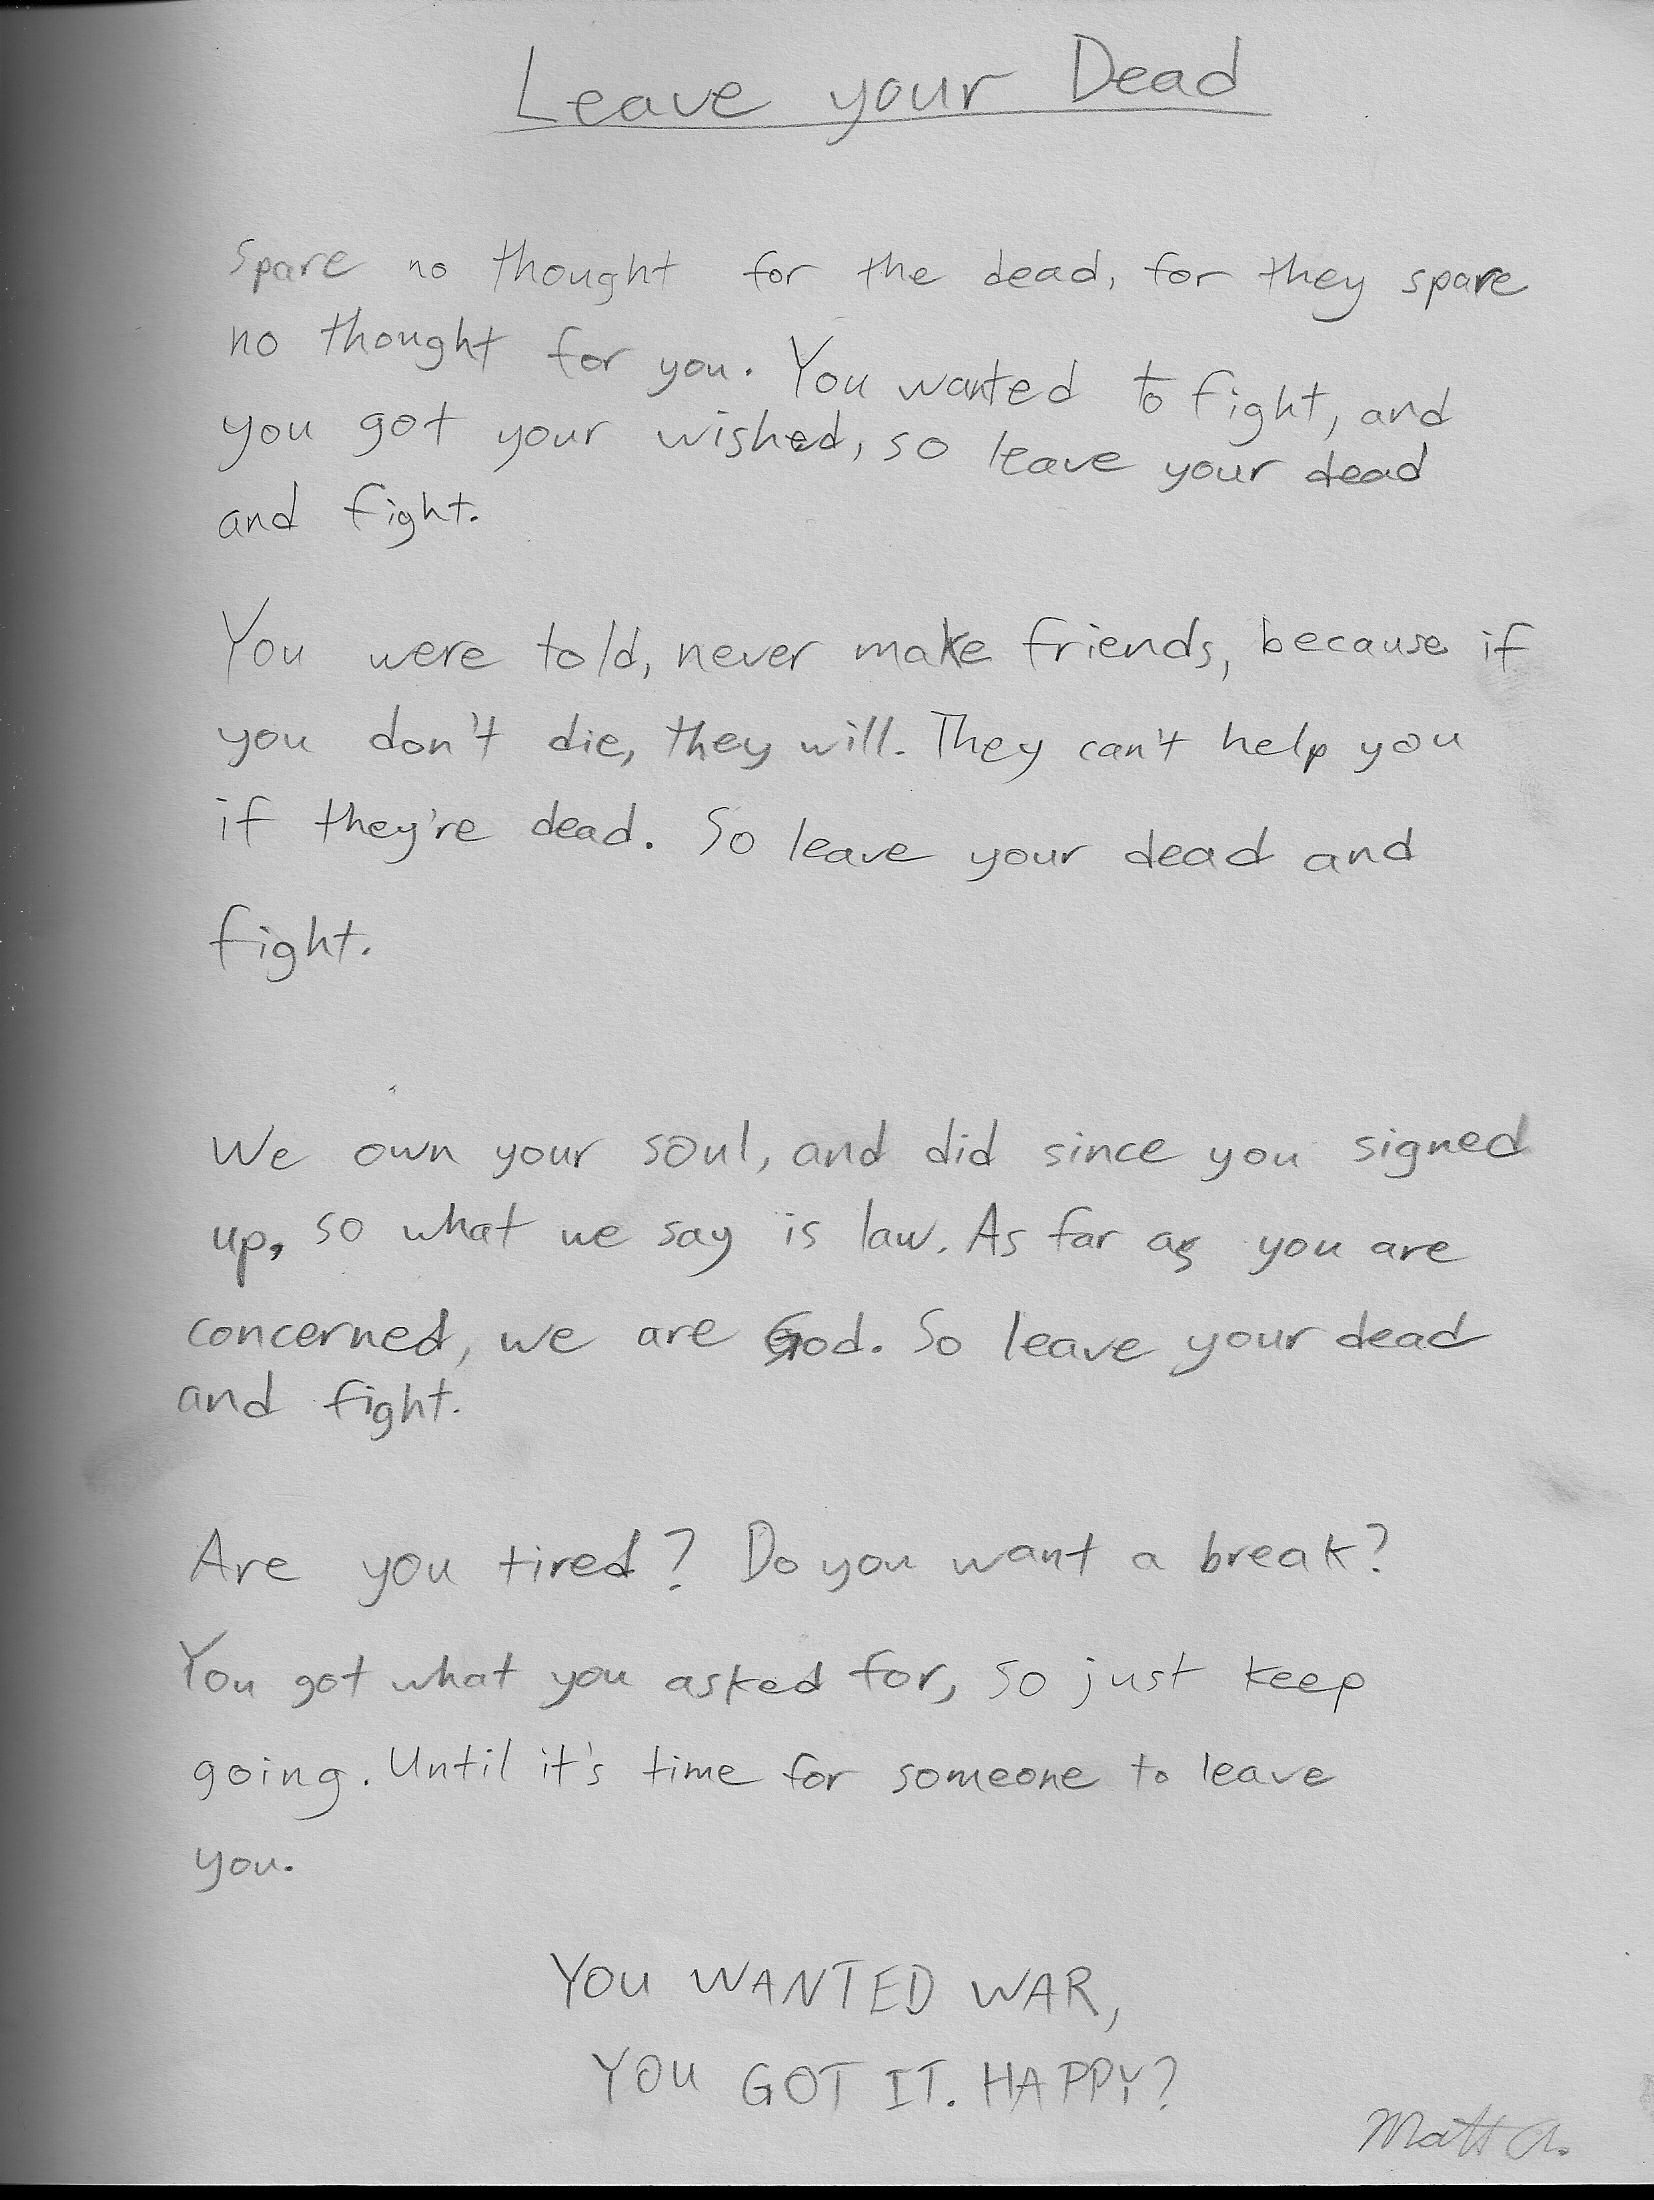 Leave your Dead
Spare no thought for the dead, for they spare
no thought for you. You wanted to fight, and
you got your wished, so leave your dead
and fight.
You were told, never make friends, because if
you don't die, they will. They can't help you
if they're dead. So leave your dead and
fight.
We own your soul, and did since you signed
up, so what we say is law. As far as you are
concerned, we are God. So leave your dead
and fight.
Are you tired? Do you want a break?
You got what you asked for, so just keep
going. Until it's time for someone to leave
you.
YOU WANTED WAR,
YOU GOT IT. HAPPY?
Matt A.